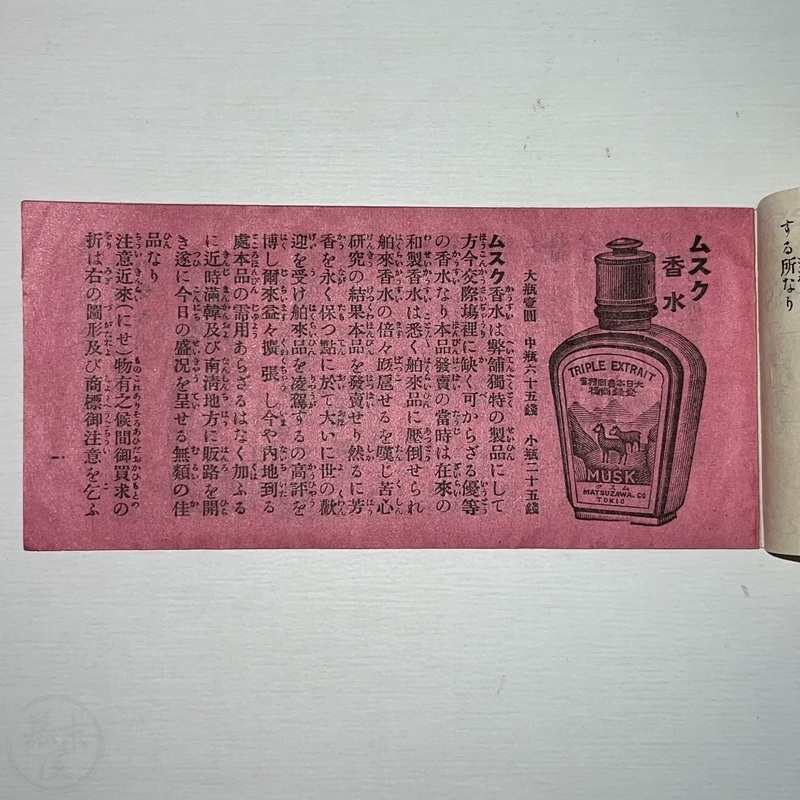 する所なり
ムスク
香水
TRIPLE EXTRAIT
MUSK
ムスク
MATSUZAWA. CO
TOKIO
大瓶壹圓 中瓶六十五錢 小瓶二十五錢
ムスク香水は弊舖獨特の製品にして
方今交際塲裡に缺く可からざる優等
の香水なり本品發賣の當時は在來の
和製香水は悉く舶來品に壓倒せられ
舶來香水の倍々跋扈せるを嘆じ苦心
研究の結果本品を發賣せり然るに芳
香を永く保つ點に於て大いに世の歡
迎を受け舶來品を凌駕するの高評を
博し爾來益々擴張し今や內地到る
處本品の需用あらざるはなく加ふる
に近時滿韓及び南淸地方に販路を開
き遂に今日の盛况を呈せる無類の佳
品なり
注意近來(にせ)物有之候間御買求の
折は右の圖形及び商標御注意を乞ふ